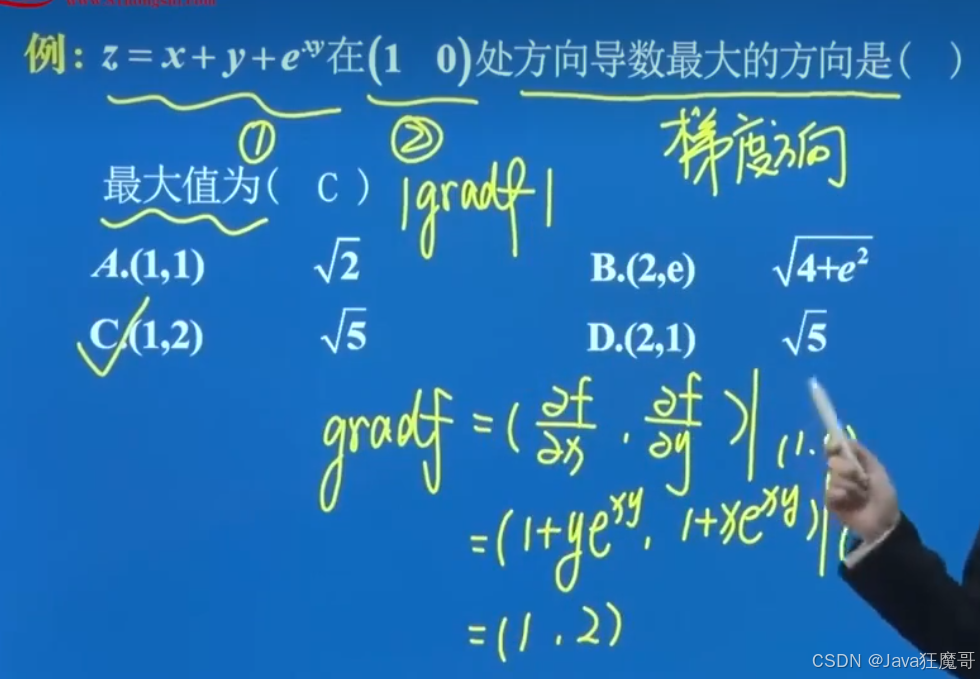 例: z = x + y + e^{xy}在(1 0)处方向导数最大的方向是( )
① ② 梯度方向
最大值为( C ) |gradf|
A.(1,1) √2 B.(2,e) √4+e²
C.(1,2) √5 D.(2,1) √5
gradf = (∂f/∂x , ∂f/∂y)| (1.
= (1+ye^{xy}, 1+xe^{xy})| (
= (1 , 2)
CSDN @Java狂魔哥